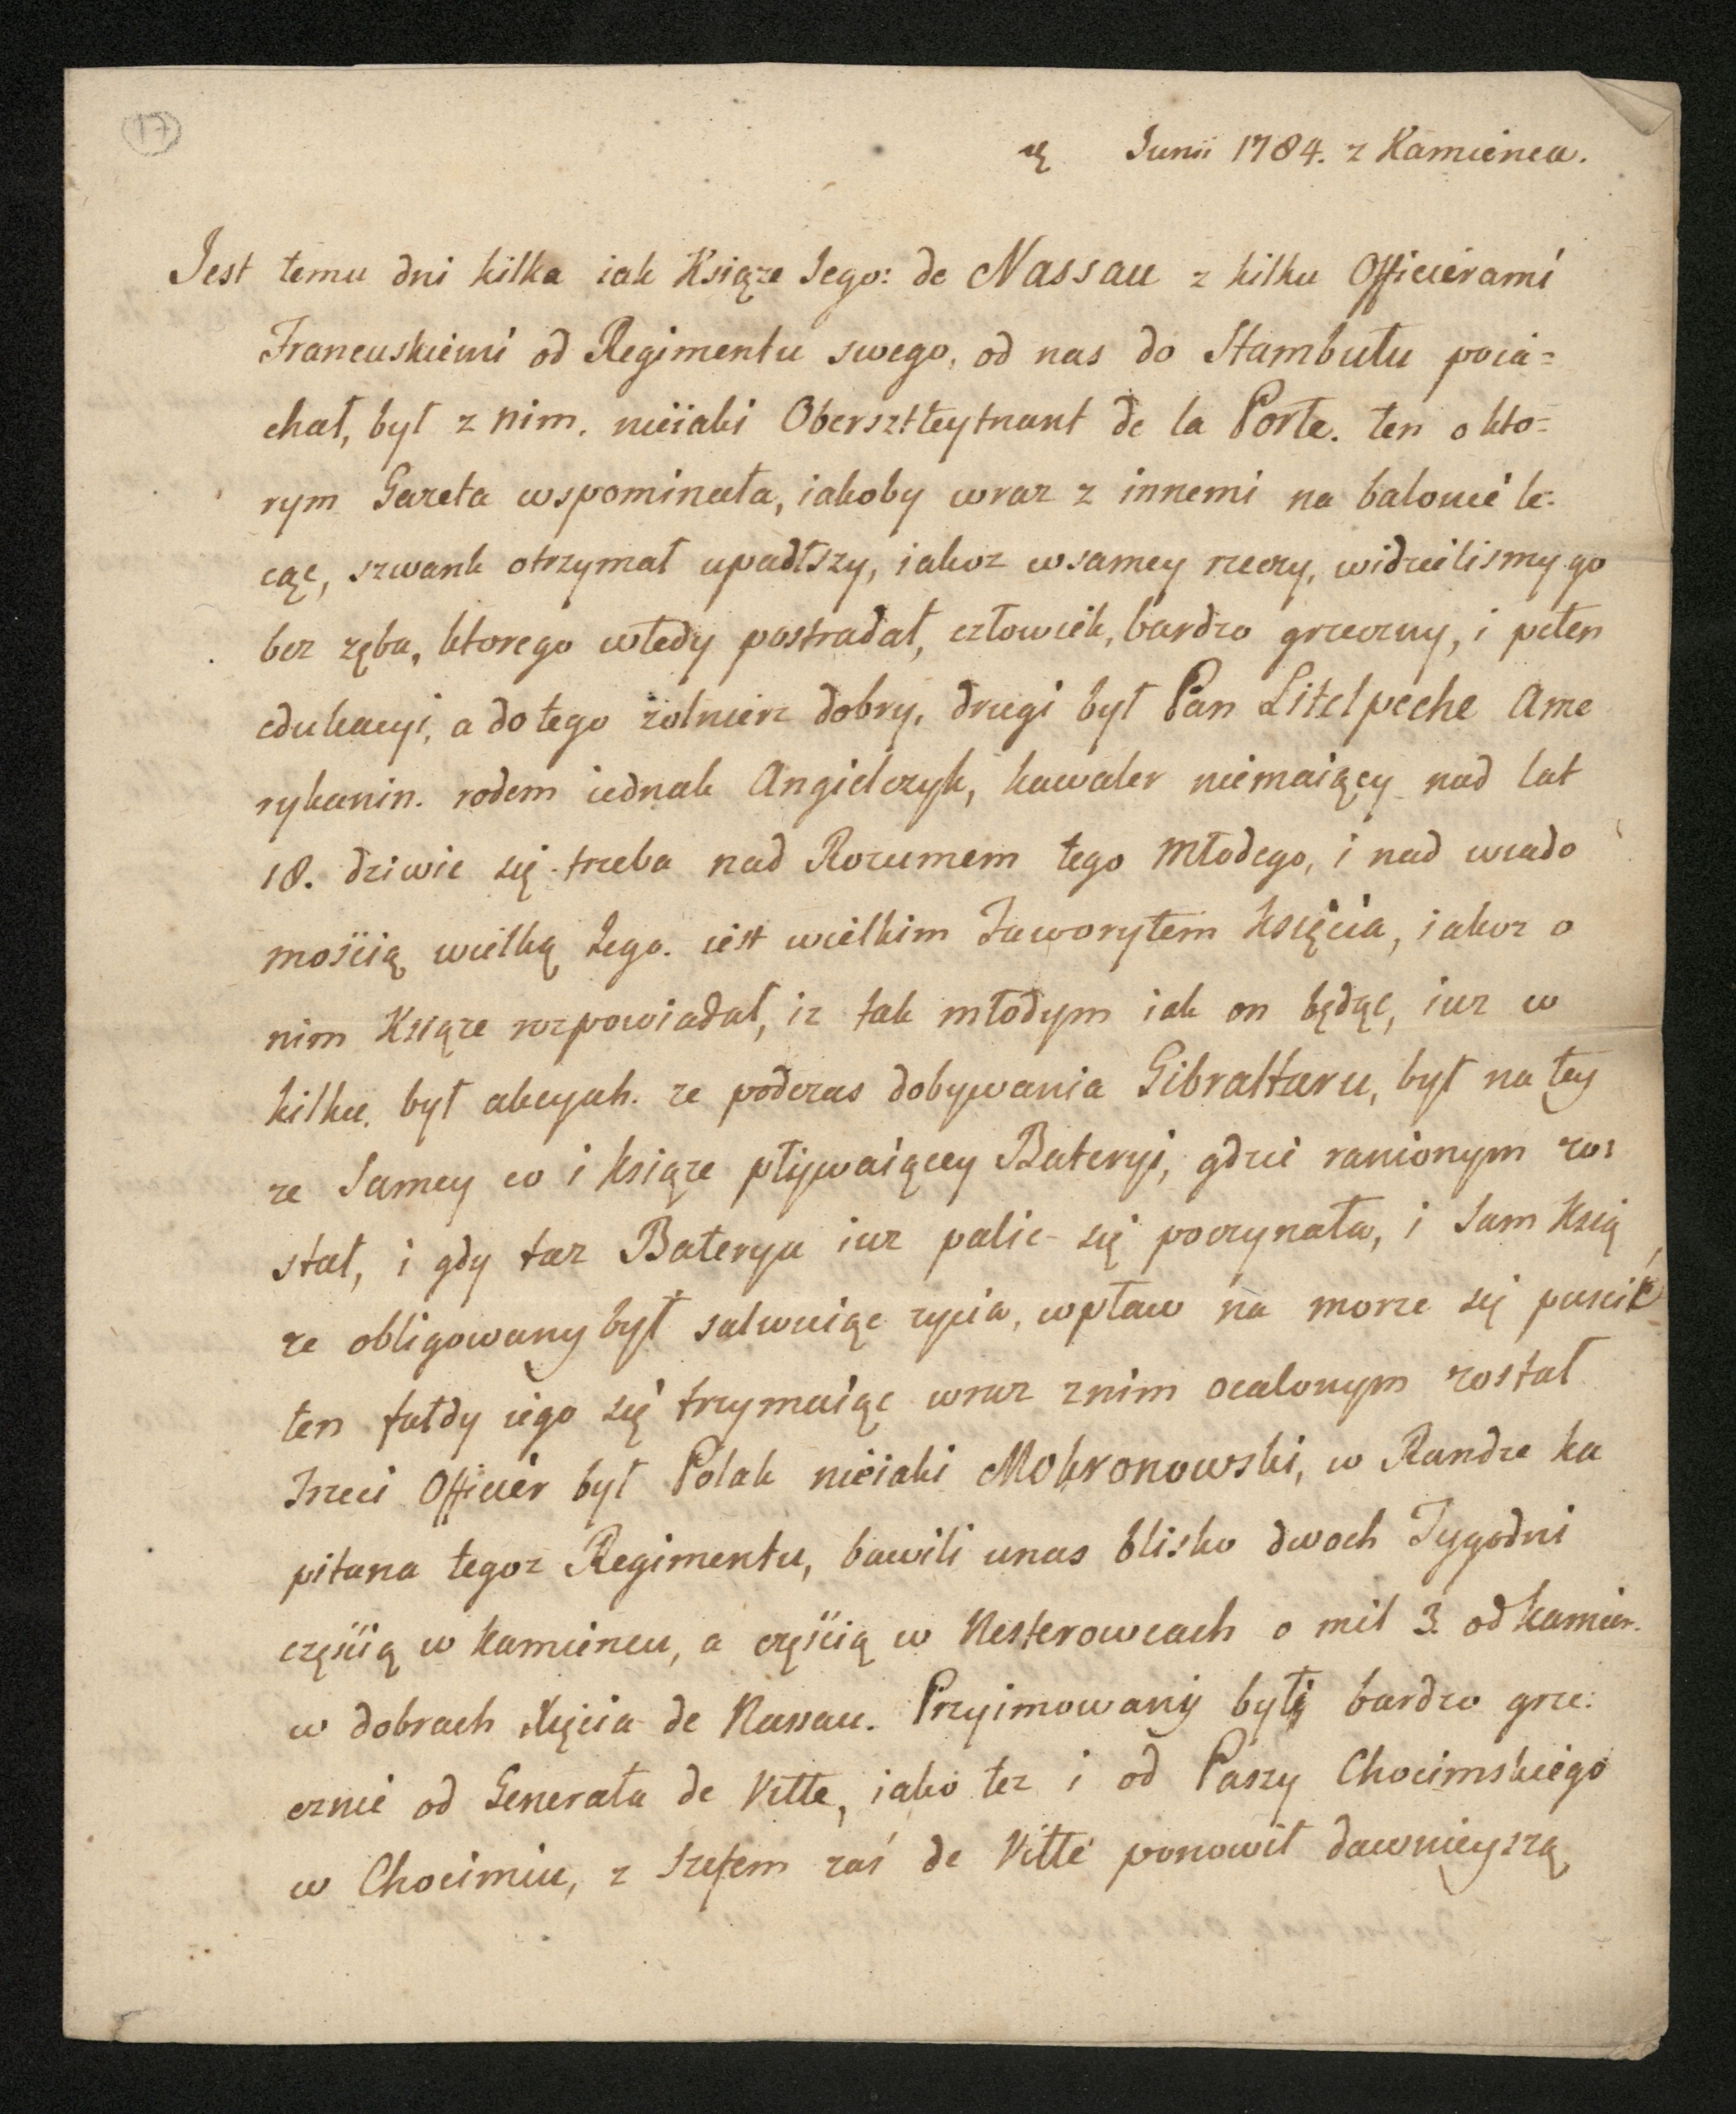 17
Junii 1784. z Kamienca.
Jest temu dni kilka iak Książe Jego: de Nassau z kilku Officierami
Francuskiemi od Regimentu swego, od nas do Stambułu poia=
chał, był z nim. nieiaki Obersztleytnant de la Porte. ten o kto=
rym Gazeta wspominała, iakoby wraz z innemi na balonie le=
cąc, szwank otrzymał upadłszy, iakoz w samey rzeczy, widzielismy go
bez zęba, ktorego wtedy postradał, człowiek, bardzo grzeczny, i pełen
edukacyi, a do tego zolnierz dobry, drugi był Pan Litelpeche Ame
rykanin. rodem iednak Angielczyk, kawaler niemaiący nad lat
18. dziwic się trzeba nad Rozumem tego młodego, i nad wiado
mością wielką Jego. iest wielkim Faworytem Księcia, iakoz o
nim Książe rozpowiadał, iz tak młodym iak on będąc, iuz w
kilku. był akcyah. ze podczas dobywania Gibraltaru, był na tey
ze Samey co i Książe pływaiącey Bateryi, gdzie ranionym zo=
stał, i gdy taz Baterya iuz palic się poczynała, i Sam Ksią
ze obligowany był salwuiąc zycia, wpław na morze się puscić
ten fałdy iego się trzymaiąc wraz z nim ocalonym został
Trzeci Officier był Polak nieiaki Mokronowski, w Randze ka
pitana tegoz Regimentu, bawili u nas blisko dwoch Tygodni
częścią w Kamiencu, a częścią w Nesterowcach o mil 3. od Kamien.
w dobrach Xięcia de Nassau. Przyimowany były bardzo grze=
cznie od Generała de Vitte, iako tez i od Paszy Chocimskiego
w Chocimiu, z Szefem zaś de Vitte ponowił dawnieyszą